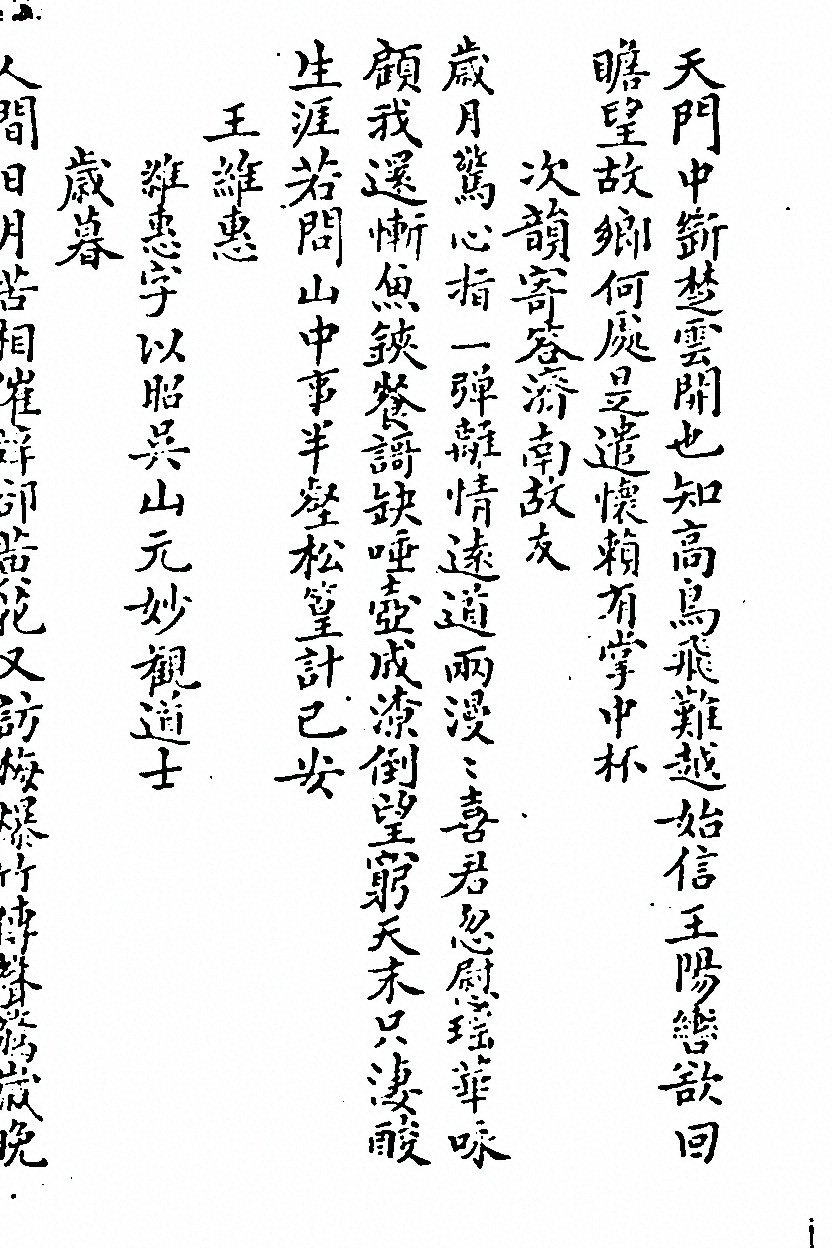 天門中斷楚雲開也知高鳥飛難越始信王陽轡欲回
瞻望故鄉何處是遣懷賴有掌中杯
次韻寄答濟南故友
歲月驚心指一彈離情遠道兩漫〻喜君忽慰瑶華咏
顧我還慚魚鋏餐謌缺唾壺成潦倒望窮天末只淒酸
生涯若問山中事半壑松篁計已安
王維惠
維惠字以昭吳山元妙觀道士
歲暮
人間日月苦相催辭卻黃花又訪梅爆竹傳聲驚歲晚